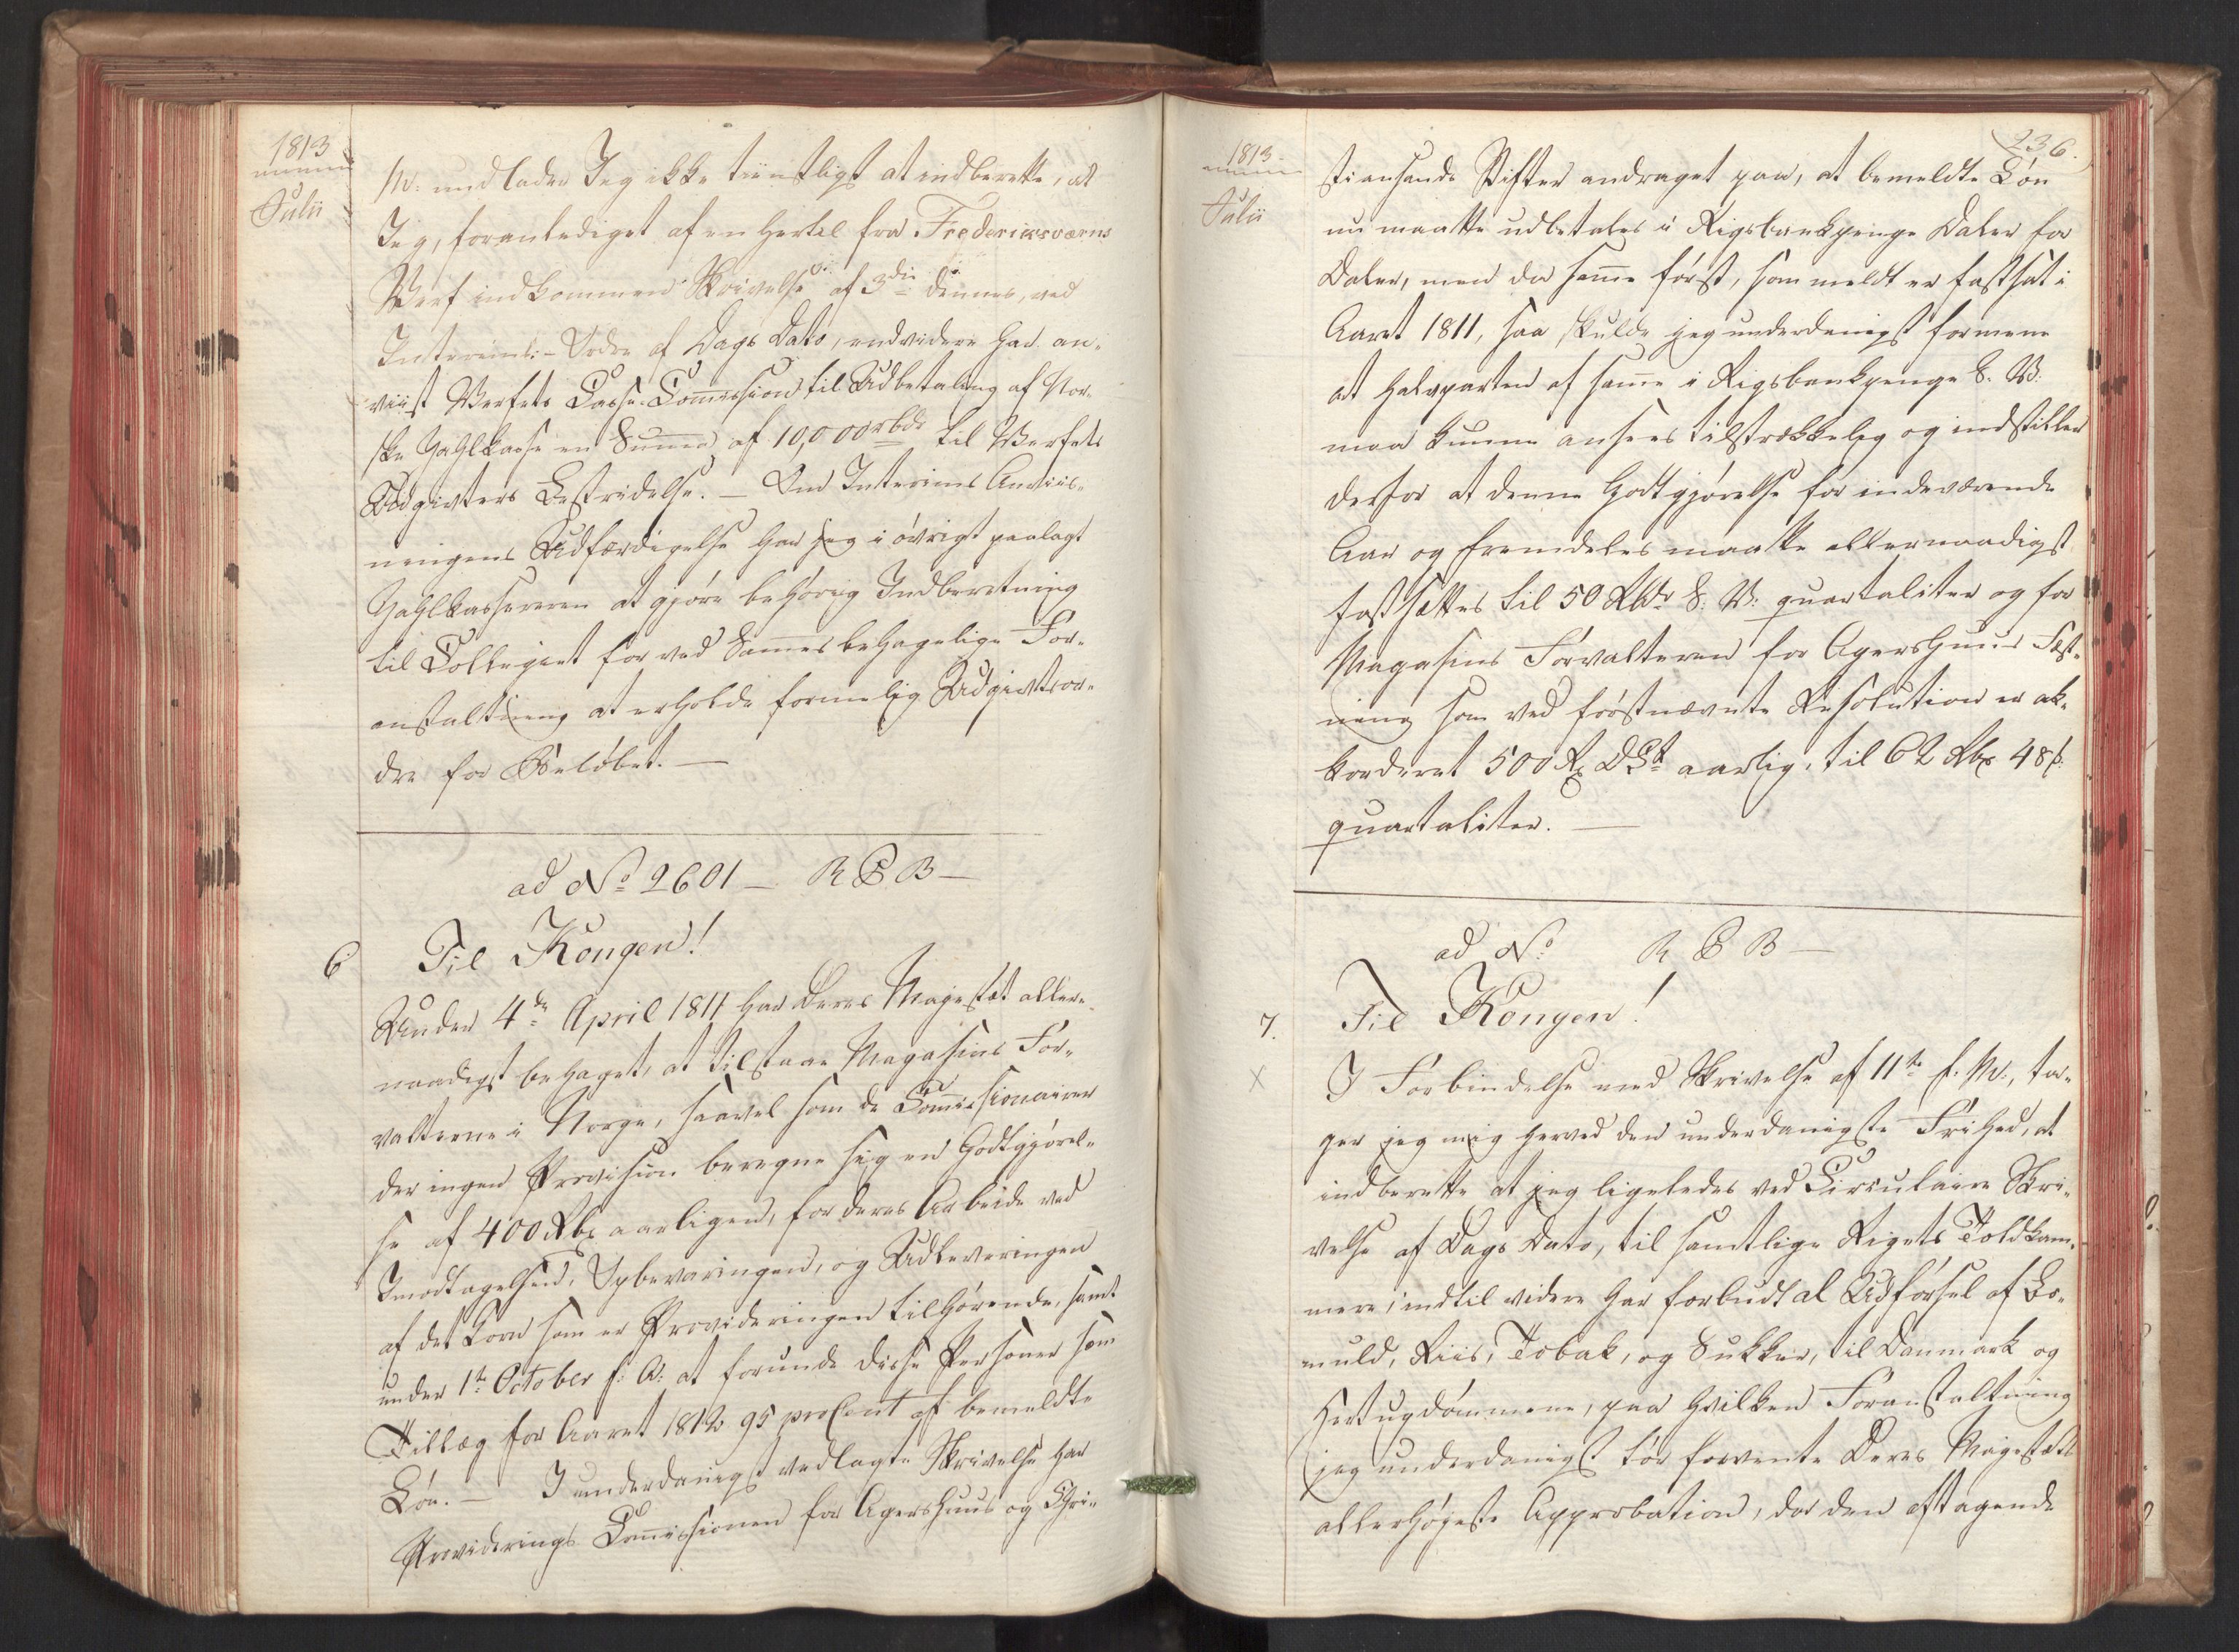 1813
Julii
M: undlader Jeg ikke tienstligst at indberette, at
Jeg, foranlediget af en hertil fra Fredericsværns
Værf indkommen Skrivelse af 3die dennes, ved
Interims-Ordre af Dags Dato, endvidere har an-
viist Værfets Casse-Commission til Udbetaling af Nor-
ske Zahlkasse en Summa af 10,000 rbdr til Værfets
Udgivters Bestridelse. — Om Interims Anviis-
ningens Udfærdigelse har jeg i øvrigt paalagt
Zahlkassereren at gjøre behørig Indberetning
til Collegiet for ved Sammes behagelige For-
anstaltning at erholde formelig Udgivtsor-
dre for Beløbet. —
ad No 2601 — R C B —
6 Til Kongen!
Under 4de April 1811 har Deres Majestæt aller-
naadigst behaget, at tilstaae Magasins For-
valterne i Norge, saavel som de Commissionairer
der ingen Provision beregne sig en Godtgjørel-
se af 400 Rbd aarligen, for deres Arbeide ved
Imodtagelsen, Opbevaringen, og Udleveringen
af det Korn som er Provideringen tilhørende, samt
under 1te October f: A: at forunde disse Personer som
Tillæg for Aaret 1812 95 proCent af bemeldte
Løn. — I underdanigst vedlagte Skrivelse har
Providerings Commissionen for Agershuus og Chri-
1813.
Julii
236.
stiansands Stifter andraget paa, at bemeldte Løn
nu maatte udbetales i Rigsbankpenge Daler for
Daler, men da samme først, som meldt er fastsat i
Aaret 1811, saa skulde jeg underdanigst formene
at Halvparten af samme i Rigsbankpenge S. V:
maa kunne ansees tilstrækkelig og indstiller
derfor at denne Godtgjørelse for indeværende
Aar og fremdeles maatte allernaadigst
fastsættes til 50 Rbdr S: V: quartaliter og for
Magasins Forvalteren for Agershuus Fæst-
ning som ved førstnævnte Resolution er ak-
korderet 500 Rd DCt aarlig, til 62 Rbd 48 s.
quartaliter. —
ad No R C B —
7. Til Kongen!
X I Forbindelse med Skrivelse af 11te f. M., ta-
ger jeg mig herved den underdanigste Frihed, at
indberette at jeg ligeledes ved Circulaire Skri-
velse af Dags Dato, til samtlige Rigets Toldkam-
mere, indtil videre har forbudt al Udførsel af Bo-
muld, Riis, Tobak, og Sukker, til Danmark og
Hertugdømmene, paa hvilken Foranstaltning
jeg underdanigst tør forvente Deres Majestæts
allerhøjeste Approbation, da den aftagende